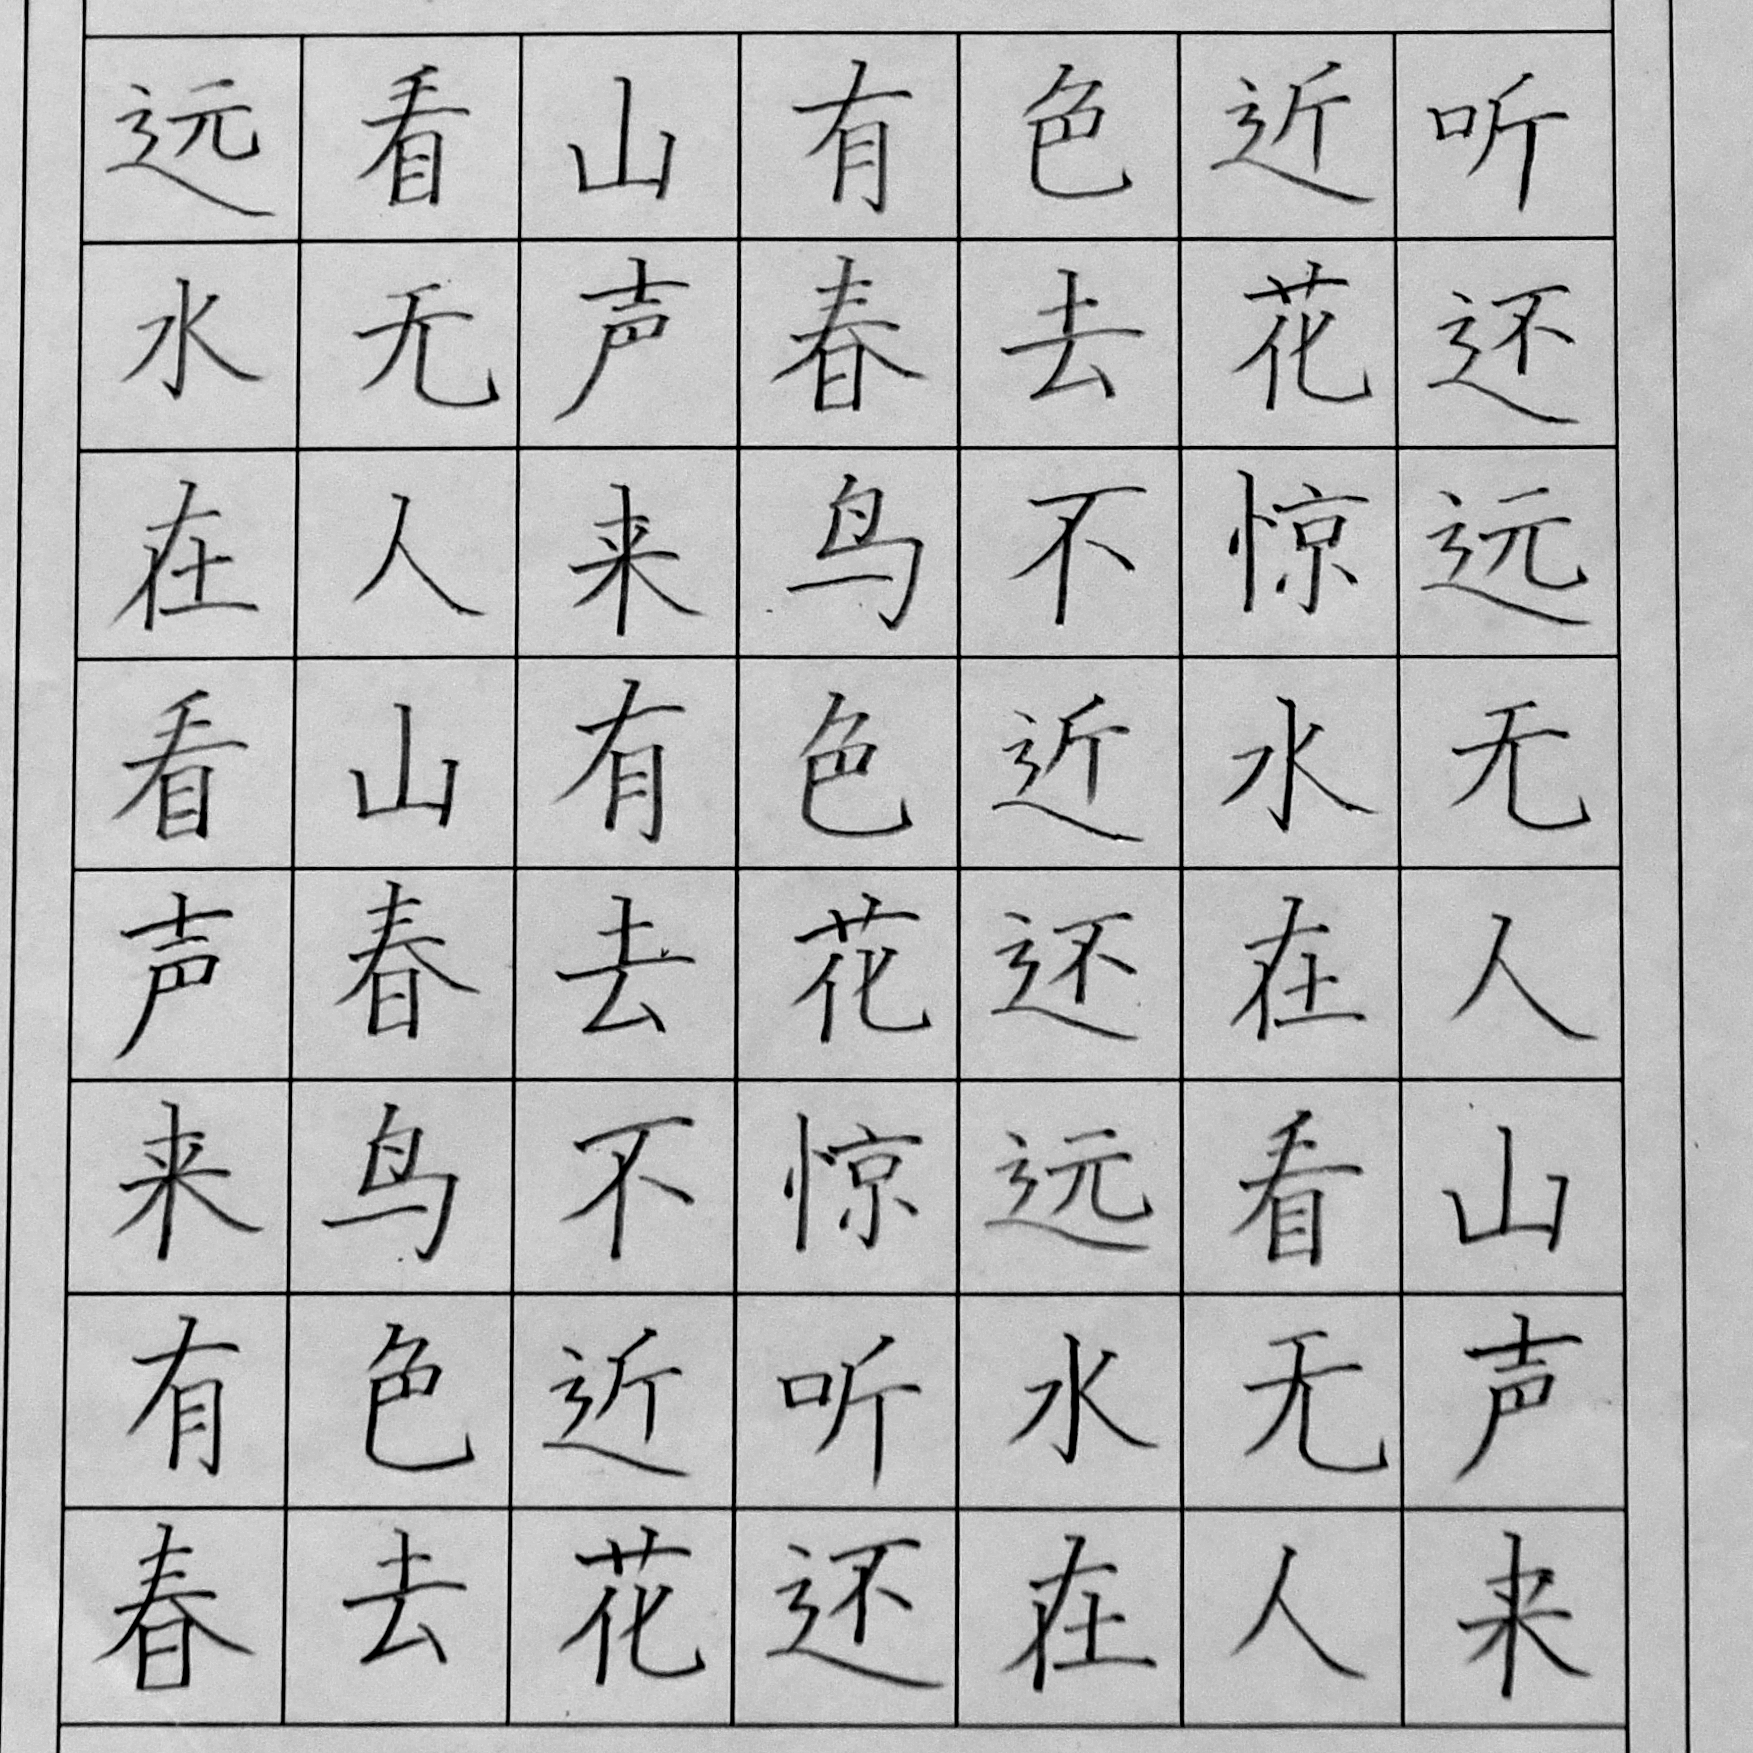 远看山有色近听
水无声春去花还
在人来鸟不惊远
看山有色近水无
声春去花还在人
来鸟不惊远看山
有色近听水无声
春去花还在人来